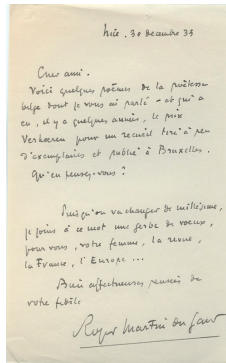 Nice. 30 decembre 35
Cher ami.
Voici quelques poèmes de la poétesse
belge dont je vous ai parlé – et qui a
eu, il y a quelques années, le prix
Verhaeren pour un recueil tiré à peu
d'exemplaires et publié à Bruxelles.
Qu'en pensez-vous ?
Puisqu'on va changer de millésime,
je joins à ce mot une gerbe de voeux,
pour vous, votre femme, la revue,
la France, l'Europe ...
Bien affectueuses pensées de
votre fidèle
Roger Martin du Gard